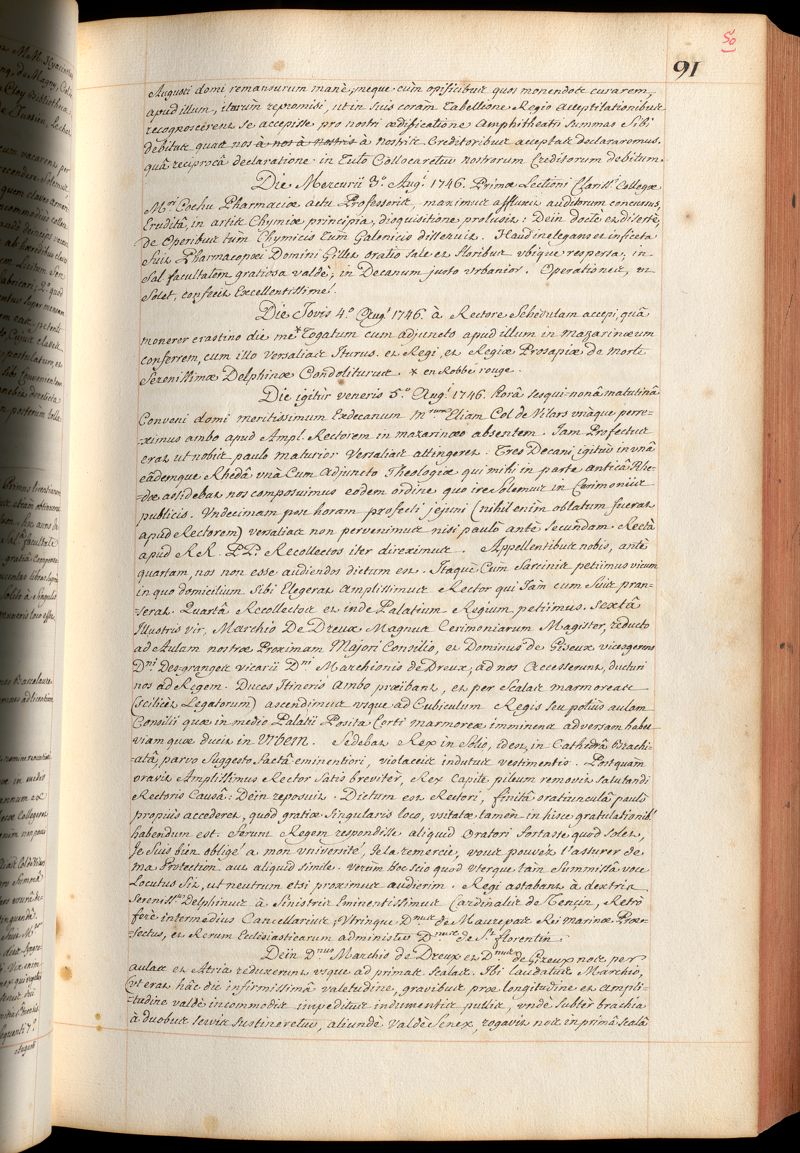 50
91
Augusti domi remansurum manè, neque cùm opificibus quos monendos curarem,
apud illum, iterùm repromisi, ut in suis coràm Tabellione Regio acceptilationibus
recognoscerent se accepisse pro nostri ædificatione Amphitheatri summas sibi
debitas quas nos à nos à nostris à Nostris Creditoribus acceptas declararemus.
quâ reciprocâ declaratione in Tuto Collocaretur nostrorum Creditorum debitum.
Die Mercurii 3.º Augi 1746. Primæ Lectioni Clariss.i Collegæ
M.ri Cochu Pharmaciæ actu Professoris, maximus affluxit auditorum concursus,
Erudita, in artis Chymiæ principia, disquisitione prolusit: Dein doctè et disertè,
de Operibus tùm Chymicis Tùm Galenicis disseruit. Haud inelegans et inficeta
suis Pharmacopœi Domini Gilles oratio sale et floribus ubique respersa, in
Sal. facultatem gratiosa valdè, in Decanum justo urbanior. Operationes, ut
Solet, confecit Excellentissimè.
Die Jovis 4.º Augi 1746. à Rectore Schedulam accepi, quâ
monerer crastino die me * Togatum cum adjuncto apud illum in Mazarinæum
conferrem, cum illo Versalias Iturus. et Regi, et Regiæ Prosapiæ de morte
Serenissimæ Delphinæ Condoliturus. * en Robbe rouge.
Die igitùr veneris 5.º Augi 1746. horâ sesqui-nonâ matutinâ
Conveni domi meritissimum Exdecanum M.rum Eliam Col de Vilars unàque perre-
ximus ambo apud Ampl. Rectorem in mazarinæo absentem. Jam Profectus
erat ut nobis paulo maturior Versalias attingeret. Tres Decani, igitur in unâ
eâdemque Rhedâ unà Cum Adjuncto Theologiæ qui mihi in parte anticâ Rhe-
dæ assidebat nos composuimus eodem ordine quo ire Solemus in Cærimoniis
publicis. Undecimam post horam profecti jejuni (nihil enim oblatum fuerat
apud Rectorem) versalias non pervenimus nisi paulò ante secundam. Rectà
apud RR. PP. Recollectos iter direximus. Appellentibus nobis, ante
quartam, nos non esse audiendos dictum est. Itaque Cum sarcinis petiimus vicum
in quo domicilium sibi Elegerat Amplissimus Rector qui Jàm cum suis pran-
serat. Quartâ Recollectos et inde Palatium Regium petiimus. Sextâ
Illustris vir, Marchio De Dreux Magnus Cerimoniarum Magister, reducto
ad Aulam nostræ Proximam Majori Consilio, et Dominus de Giseux vicesgerens
Dni Desgranges vicarii Dni Marchionis de Dreux, ad nos Accesserunt, ducturi
nos ad Regem. Duces Itineris Ambo præibant, et per Scalas marmoreas
(scilicèt Legatorum) ascendimus usque ad Cubiculum Regis seu potiùs aulam
Consilii quæ in medio Palatii Posita Corti marmoreæ imminens adversam habet
viam quæ ducit in Urbem. Sedebat Rex in Solio, ideo, in Cathedrâ Brachi-
atâ, parvo Suggesto factâ eminentiori, violaceis indutus vestimentis. Postquam
oravit Amplissimus Rector Satis brevitèr, Rex Capite pileum removit salutandi
Rectoris Causâ: Dein reposuit. Dictum est Rectori, finitâ oratiunculâ, paulò
propiùs accederet, quod gratiæ Singularis loco, usitatæ tamèn in hisce gratulationib.s
habendum est. Ferunt Regem respondisse aliquid Oratori Fortasse, quod Solet,
Je Suis bien obligé a mon université, Je la remercie, vous pouvez l'assurer de
ma Protection aut aliquid simile. Verùm hoc scio quod Uterque tàm Summissâ voce
Locutus sit, ut neutrum etsi proximus audierim. Regi astabant à dextris
Serenissimus Delphinus à Sinistris Eminentissimus Cardinalis de Tençin, Retrò
ferè intermedius Cancellarius; Utrinque Dnus de Maurepas Rei marinæ Præ-
fectus, et Rerum Ecclesiasticarum administer Dnus de St. florentin.
Dein Dnus Marchio de Dreux et Dnus de Giseux nos per
aulas et Atria reduxerunt usque ad primas Scalas. Ibi laudatus Marchio,
(ut erat hâc die infirmissimâ valetudine, gravibus præ longitudine et ampli-
tudine valdè incommodis impeditus indumentis pullis, undè subter brachia
à duobus servis sustineretur, aliundè valdè Senex, rogavit nos in primâ scalâ